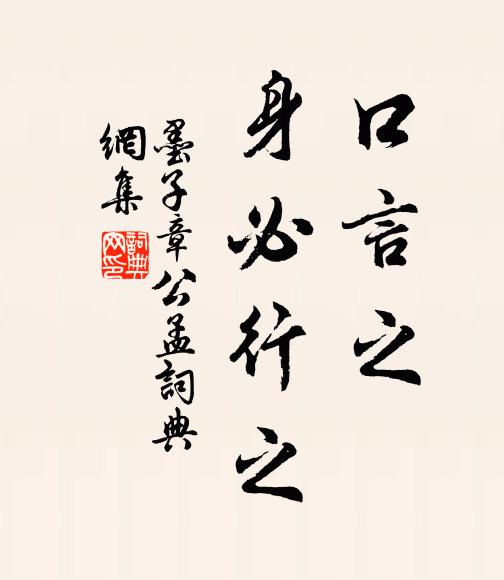 口言之
身必行之
墨子章公孟詞典
網集
詞典
网印